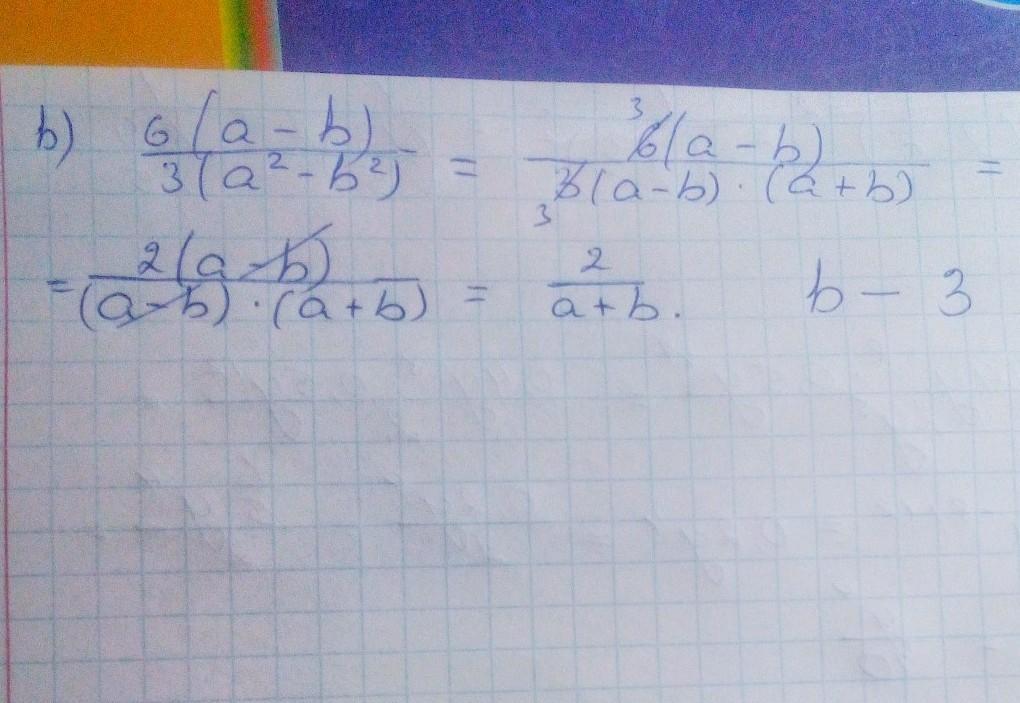 b) 6(a - b) / 3(a² - b²) = ³6(a - b) / ₃3(a - b) · (a + b) =
= 2(a - b) / (a - b) · (a + b) = 2 / a + b. b - 3